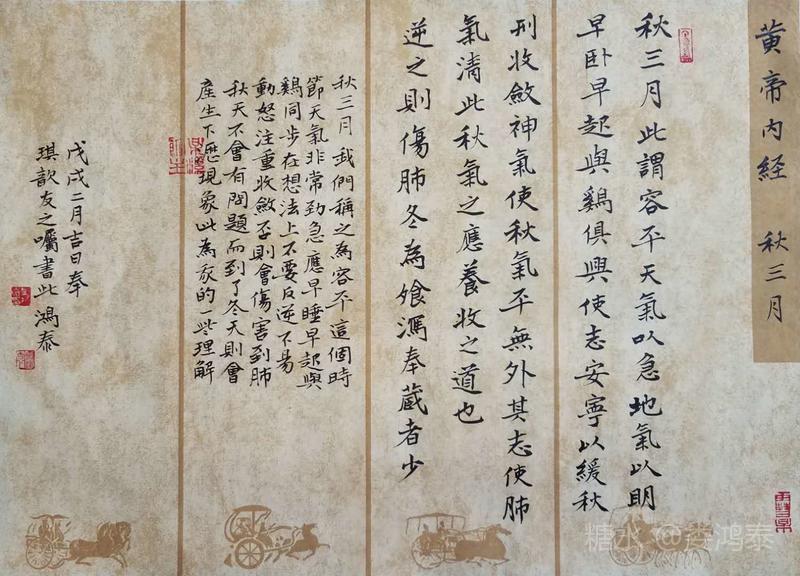 黄帝内经 秋三月
秋三月此謂容平天氣以急地氣以明
早卧早起與鷄俱興使志安寧以緩秋
刑收斂神氣使秋氣平無外其志使肺
氣清此秋氣之應養收之道也
逆之則傷肺冬為飧瀉奉藏者少
秋三月我們稱之為容平這個時
節天氣非常劲急應早睡早起與
鷄同步在想法上不要反逆不易
動怒注重收斂否則會傷害到肺
秋天不會有問題而到了冬天則會
產生下應現象此為我的一些理解
戊戌二月吉日奉
琪歆友之囑書此鴻泰
糖水 @鸿泰